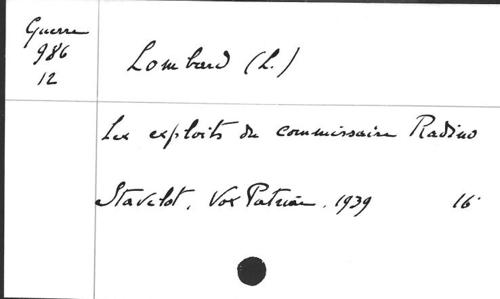 Guerre
986
12
Lombard (L.)
Les exploits du commissaire Radino
Stavelot, Vox Patriae, 1939 16°